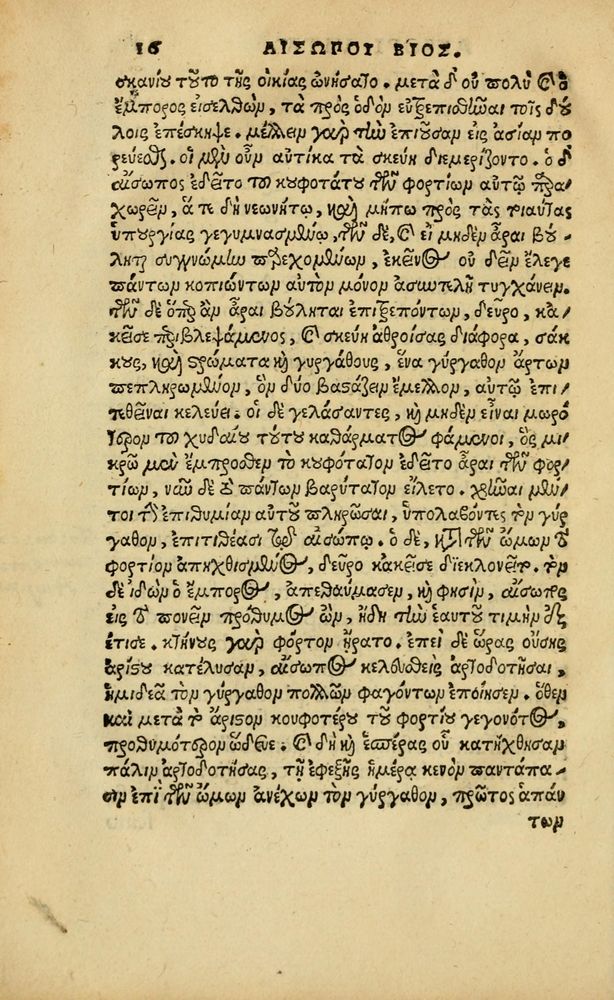 16 ΑΙΣΩΠΟΥ ΒΙΟΣ.
σκανίου τοῦτο τῆς οἰκίας ὠνήσατο. μετὰ δ' οὐ πολὺ καὶ ὁ
ἔμπορος εἰσελθὼν, τὰ πρὸς ὁδὸν εὐτρεπισθῆναι τοῖς δού
λοις ἐπέσκηψε. μέλλειν γὰρ τὴν ἐπιοῦσαν εἰς ἀσίαν πο
ρεύεσθαι. οἱ μὲν οὖν αὐτίκα τὰ σκεύη διεμερίζοντο. ὁ δ'
αἴσωπος ἐδεῖτο τὸ κουφότατον τῶν φορτίων αὐτῷ παρα/
χωρεῖν, ἅ τε δὴ νεωνήτῳ, καὶ μήπω πρὸς τὰς τοιαύτας
ὑπουργίας γεγυμνασμένῳ, τῶν δὲ, καὶ εἰ μηδὲν ἆραι βού-
λητ συγγνώμην παρεχομένων, ἐκεῖνος οὐ δεῖν ἔλεγε
πάντων κοπιώντων αὐτὸν μόνον ἀσυντελῆ τυγχάνειν.
τῶν δὲ ὅπερ ἂν ἆραι βούληται ἐπιτρεπόντων, δεῦρο, κἀ/
κεῖσε περιβλεψάμενος, καὶ σκεύη ἀθροίσας διάφορα, σάκ
κους, καὶ στρώματα καὶ γυργάθους, ἕνα γύργαθον ἄρτων
πεπληρωμένον, ὃν δύο βαστάζειν ἔμελλον, αὐτῷ ἐπι/
τεθῆναι κελεύει. οἱ δὲ γελάσαντες, καὶ μηδὲν εἶναι μωρό
τερον τοῦ χυδαίου τούτου καθάρματος φάμενοι, ὃς μι/
κρῷ μὲν ἔμπροσθεν τὸ κουφότατον ἐδεῖτο ἆραι τῶν φορ/
τίων, νῦν δὲ τὸ πάντων βαρύτατον εἵλετο. χρῆναι μέν/
τοι τὴν ἐπιθυμίαν αὐτοῦ πληρῶσαι, ὑπολαβόντες τὸν γύρ
γαθον, ἐπιτιθέασι τῷ αἰσώπῳ. ὁ δὲ, κατὰ τῶν ὤμων τὸ
φορτίον ἀπηχθισμένος, δεῦρο κἀκεῖσε διεκλονεῖτο. τὸν
δὲ ἰδὼν ὁ ἔμπορος, ἀπεθαύμασεν, καὶ φησὶν, αἴσωπος
εἰς τὸ πονεῖν πρόθυμος ὢν, ἤδη τὴν ἑαυτοῦ τιμὴν ἐξ
έτισε. κτήνους γὰρ φόρτον ἤρατο. ἐπεὶ δὲ ὥρας οὔσης
ἀρίστου κατέλυσαν, αἴσωπος κελευσθεὶς ἀρτοδοτῆσαι,
ἡμιδεᾶ τὸν γύργαθον πολλῶν φαγόντων ἐποίησεν. ὅθεν
καὶ μετὰ τὸ ἄριστον κουφοτέρου τοῦ φορτίου γεγονότος,
προθυμότερον ὥδευε. καὶ δὴ καὶ ἑσπέρας οὗ κατήχθησαν
πάλιν ἀρτοδοτήσας, τῇ ἐφεξῆς ἡμέρᾳ κενὸν παντάπα-
σιν ἐπὶ τῶν ὤμων ἀνέχων τὸν γύργαθον, πρῶτος ἁπάν
των